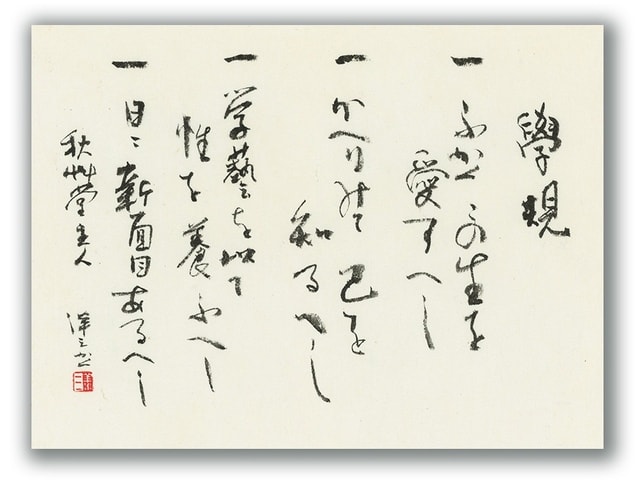 學規
一 ふかくこの生を
愛すへし
一 かへりみて己を
知るへし
一 学藝を以て
性を養ふへし
一 日々新面目あるへし
秋艸堂主人